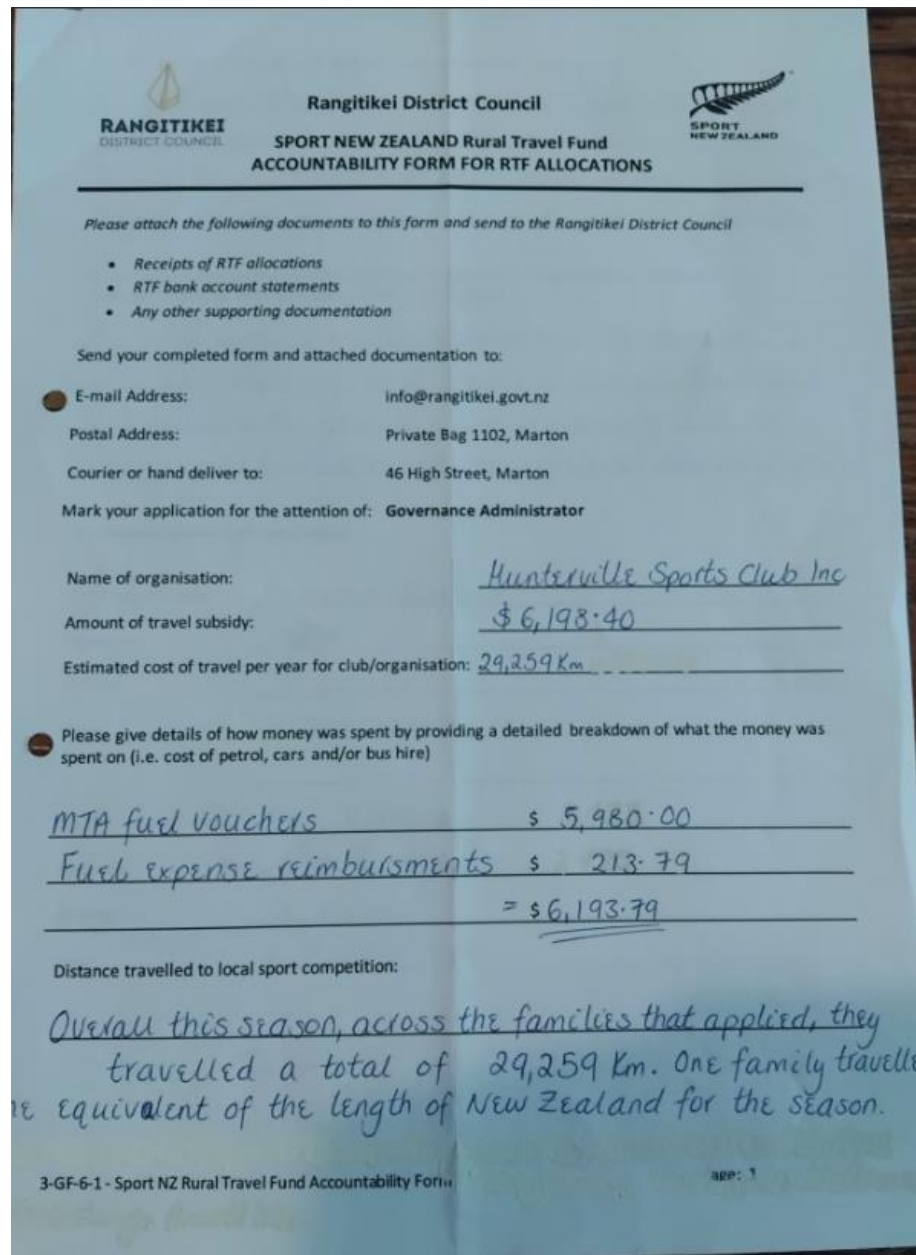 RANGITIKEI
DISTRICT COUNCIL
Rangitikei District Council
SPORT NEW ZEALAND Rural Travel Fund
ACCOUNTABILITY FORM FOR RTF ALLOCATIONS
SPORT
NEW ZEALAND
Please attach the following documents to this form and send to the Rangitikei District Council
• Receipts of RTF allocations
• RTF bank account statements
• Any other supporting documentation
Send your completed form and attached documentation to:
E-mail Address: info@rangitikei.govt.nz
Postal Address: Private Bag 1102, Marton
Courier or hand deliver to: 46 High Street, Marton
Mark your application for the attention of: Governance Administrator
Name of organisation: Hunterville Sports Club Inc
Amount of travel subsidy: $6,198.40
Estimated cost of travel per year for club/organisation: 29,259 Km
Please give details of how money was spent by providing a detailed breakdown of what the money was
spent on (i.e. cost of petrol, cars and/or bus hire)
MTA fuel vouchers $ 5,980.00
Fuel expense reimbursments $ 213.79
= $6,193.79
Distance travelled to local sport competition:
Overall this season, across the families that applied, they
travelled a total of 29,259 Km. One family travelle
he equivalent of the length of New Zealand for the season.
3-GF-6-1 - Sport NZ Rural Travel Fund Accountability Form age: 1